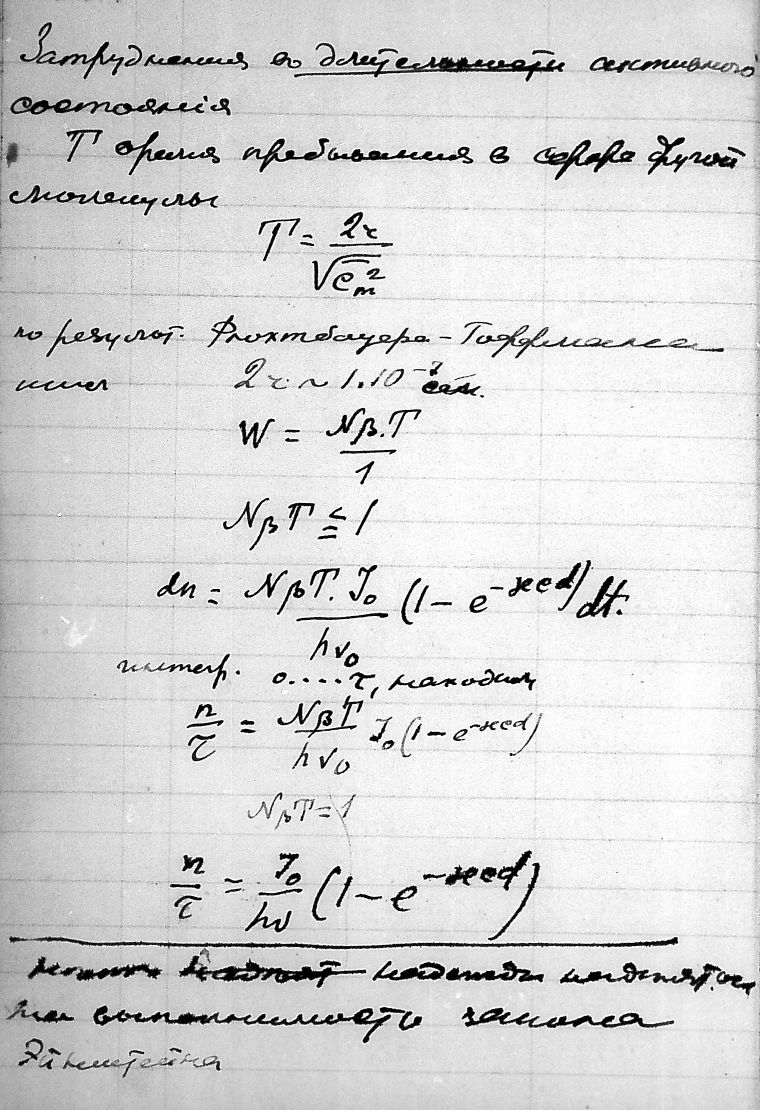 Затруднения в длительности активного
состоянія
T время пребывания в сфере другой
молекулы
T = 2r / √c̅ₘ²
по результ. Фюхтбауера-Гоффмана
имел 2r ~ 1.10⁻⁷ см.
W = Nβ.T / 1
NβT ≦ 1
dn = NβT. J₀ / hν₀ (1 - e^-ϰcd) dt.
интегр. 0....τ, находим
n / τ = NβT / hν₀ J₀ (1 - e^-ϰcd)
NβT = 1
n / τ = J₀ / hν (1 - e^-ϰcd)
надежды
на выполнимость закона
Эйнштейна